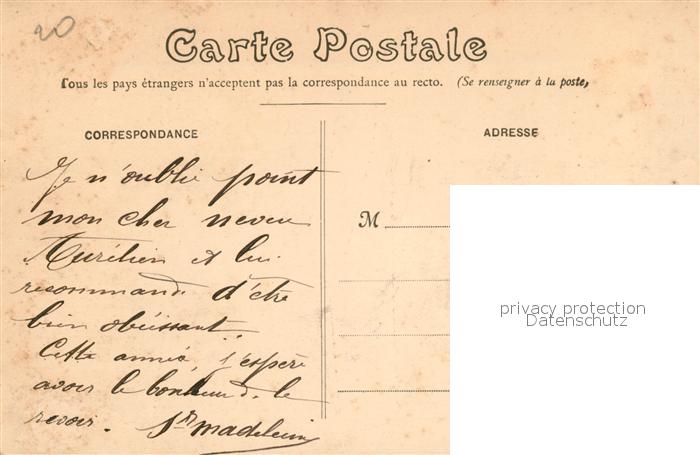 20
Carte Postale
Tous les pays étrangers n'acceptent pas la correspondance au recto. (Se renseigner à la poste,
CORRESPONDANCE
ADRESSE
Je n'oublie point
mon cher neveu
Aurélien et lui
recommande d'être
bien obéissant
Cette année, j'espère
avoir le bonheur de le
revoir. Sr Madeleine
M
privacy protection
Datenschutz